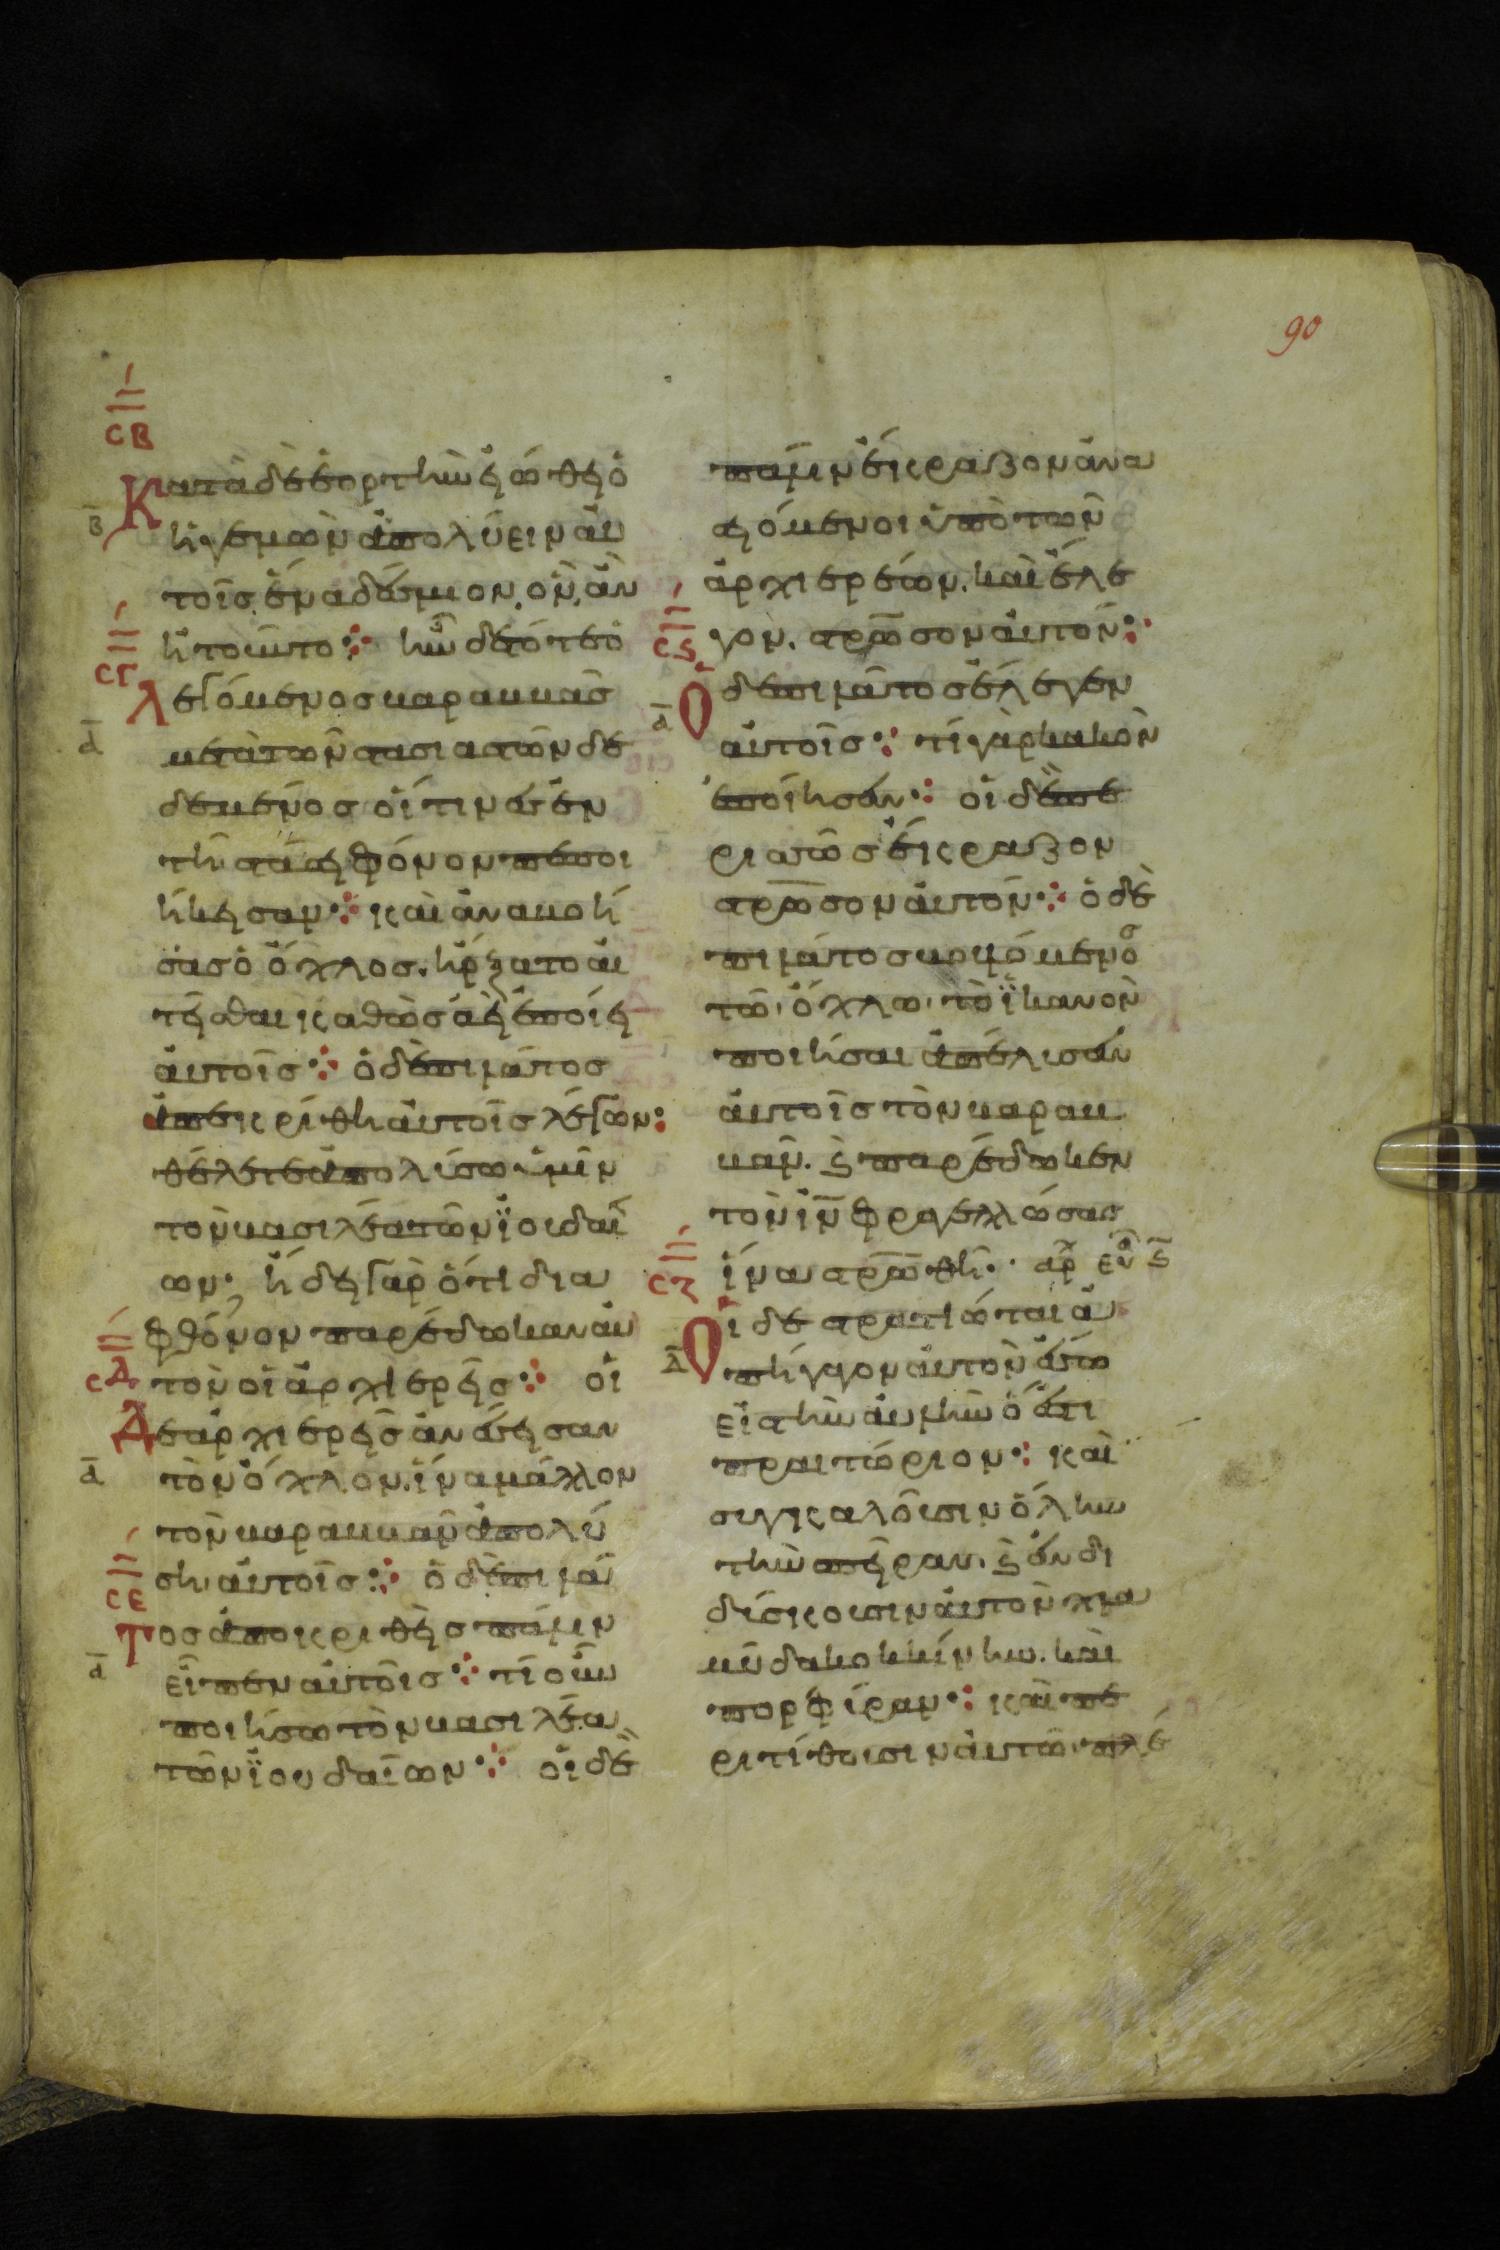 90
ΣΒ
Κατὰ δὲ ἑορτὴν εἰώθει ὁ
Β̄
ἡγεμὼν ἀπολύειν αὐ
τοῖς ἕνα δέσμιον, ὃν ἂν
ΣΓ
ἠτοῦντο⁘ ἦν δὲ τότε ὁ
λεγόμενος βαραββᾶς
ᾱ
μετὰ τῶν στασιαστῶν δε
δεμένος οἵτινες ἐν
τῆ στάσει φόνον πεποι
ήκεισαν⁘ καὶ ἀναβοή
σας ὁ ὄχλος. ἤρξατο αἰ
τεῖσθαι καθὼς ἀεὶ ἐποίει
αὐτοῖς⁘ ὁ δὲ πιλάτος
ἀπεκρίθη αὐτοῖς λέγων:
θέλετε ἀπολύσω ὑμῖν
τὸν βασιλέα τῶν ϊουδαί
ων· ἤδει γὰρ ὅτι δια
φθόνον παρέδωκαν αὐ
ΣΔ
τὸν οἱ ἀρχιερεῖς⁘ οἱ
Δὲ ἀρχιερεῖς ἀνέσεισαν
ᾱ
τὸν ὄχλον. ἵνα μάλλον
τὸν βαραββᾶν ἀπολύ
ΣΕ
ση αὐτοῖς⁘ ὁ δὲ πιλᾶ
Τος ἀποκριθεὶς πάλιν
ᾱ
εἶπεν αὐτοῖς⁘ τί οὖν
ποιήσω τὸν βασιλέα
τῶν ϊουδαίων⁘ οἱ δὲ
πάλιν ἔκραζον ἀνα
σειόμενοι ὑπὸ τῶν
ἀρχιερέων. καὶ ἔλε
ΣϚ
γον. στρ̅ωσον αὐτόν⁘
Ο δὲ πιλᾶτος ἔλεγεν
ᾱ
αὐτοῖς⁘ τί γὰρ κακὸν
ἐποίησεν⁘ οἱ δὲ πε
ρισσῶς ἔκραζον
στρ̅ωσον αὐτόν⁘ ὁ δὲ
πιλάτος βουλόμενος
τῶ ὄχλω τὸ ϊκανὸν
ποιῆσαι ἀπέλυσεν
αὐτοῖς τὸν βαραβ
βᾶν. ϗ παρέδωκεν
τὸν ι̅ν̅ φραγελλώσας
ΣΖ
ἵνα στρ̅ω̅θῆ·
Οι δὲ στρατιώται ἀ
Δ̄
πήγαγον αὐτὸν ἔσω
εἰς τὴν αὐλὴν ὅ ἐστι
πραιτώριον⁘ καὶ
συγκαλοῦσιν ὅλην
τὴν σπεῖραν. ϗ ἐνδι
δύσκουσιν αὐτὸν χλα
μύδα κοκκίνην. καὶ
πορφύραν⁘ καὶ πε
ριτίθουσιν αὐτῶ πλέ